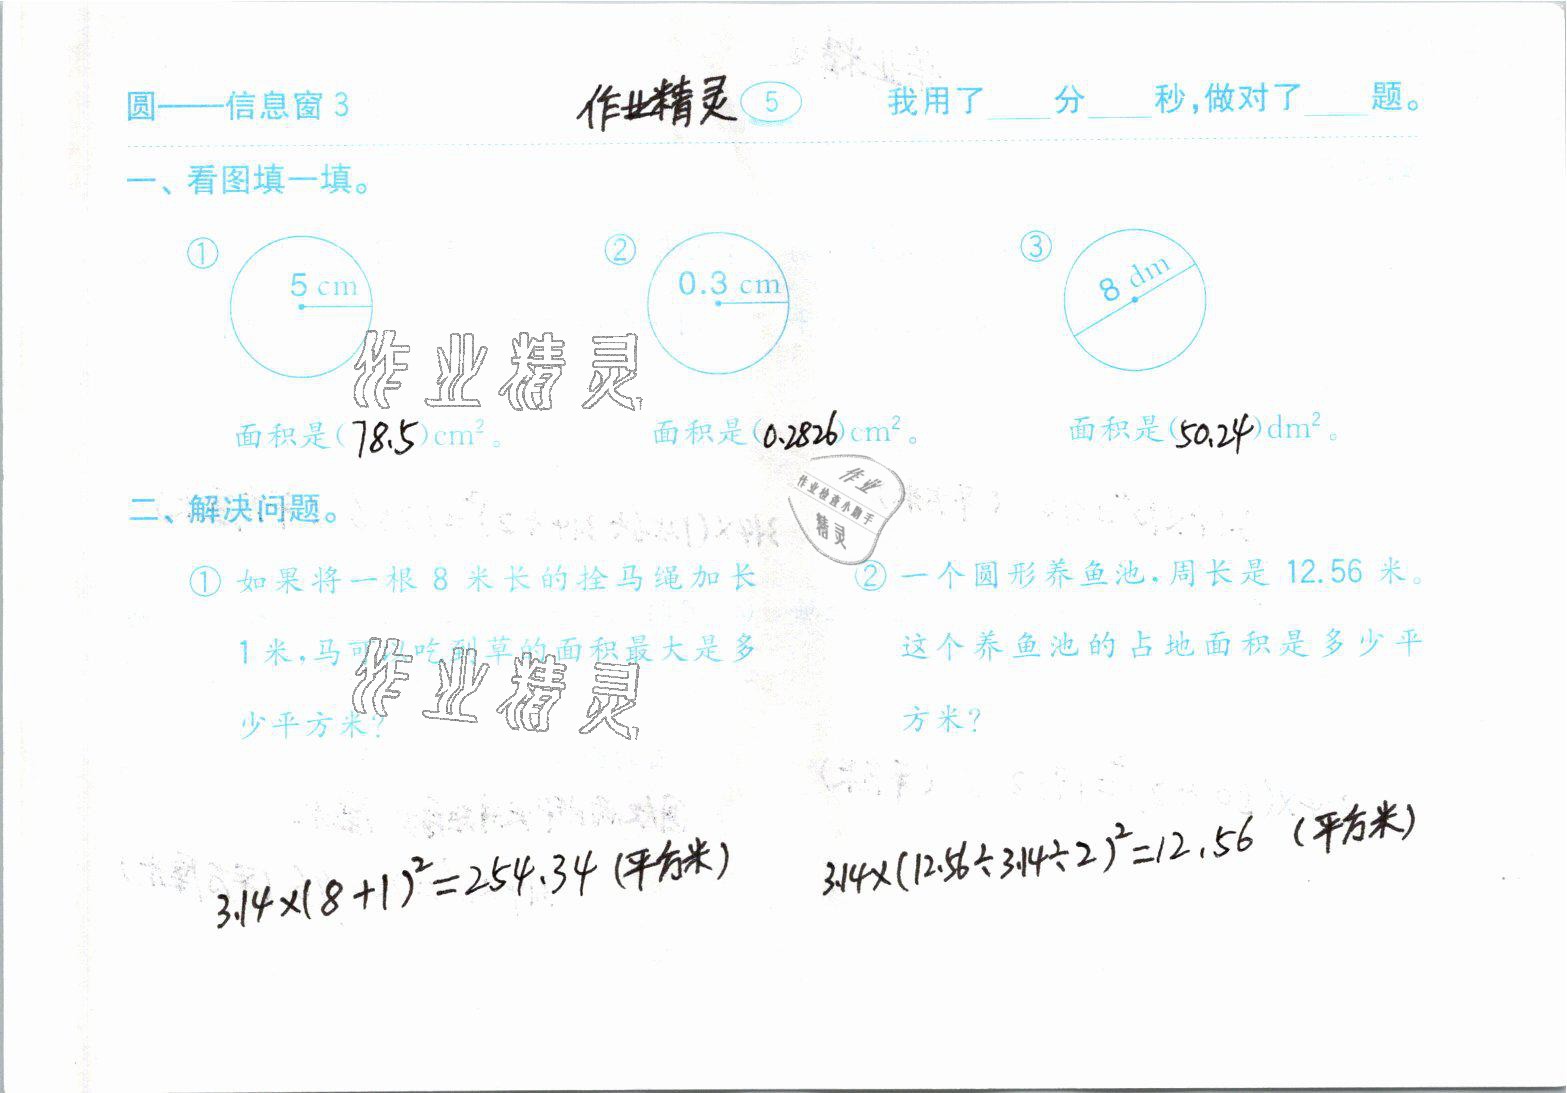 圆——信息窗3 作业精灵 5 我用了____分____秒,做对了____题。
一、看图填一填。
① 5 cm ② 0.3 cm ③ 8 dm
作业精灵
面积是(78.5)cm²。 面积是(0.2826)cm²。 面积是(50.24)dm²。
作业
作业检查小助手
精灵
二、解决问题。
① 如果将一根8米长的拴马绳加长
1米,马可以吃到草的面积最大是多
少平方米?
作业精灵
② 一个圆形养鱼池,周长是12.56米。
这个养鱼池的占地面积是多少平
方米?
3.14×(8+1)²=254.34(平方米)
3.14×(12.56÷3.14÷2)²=12.56 (平方米)